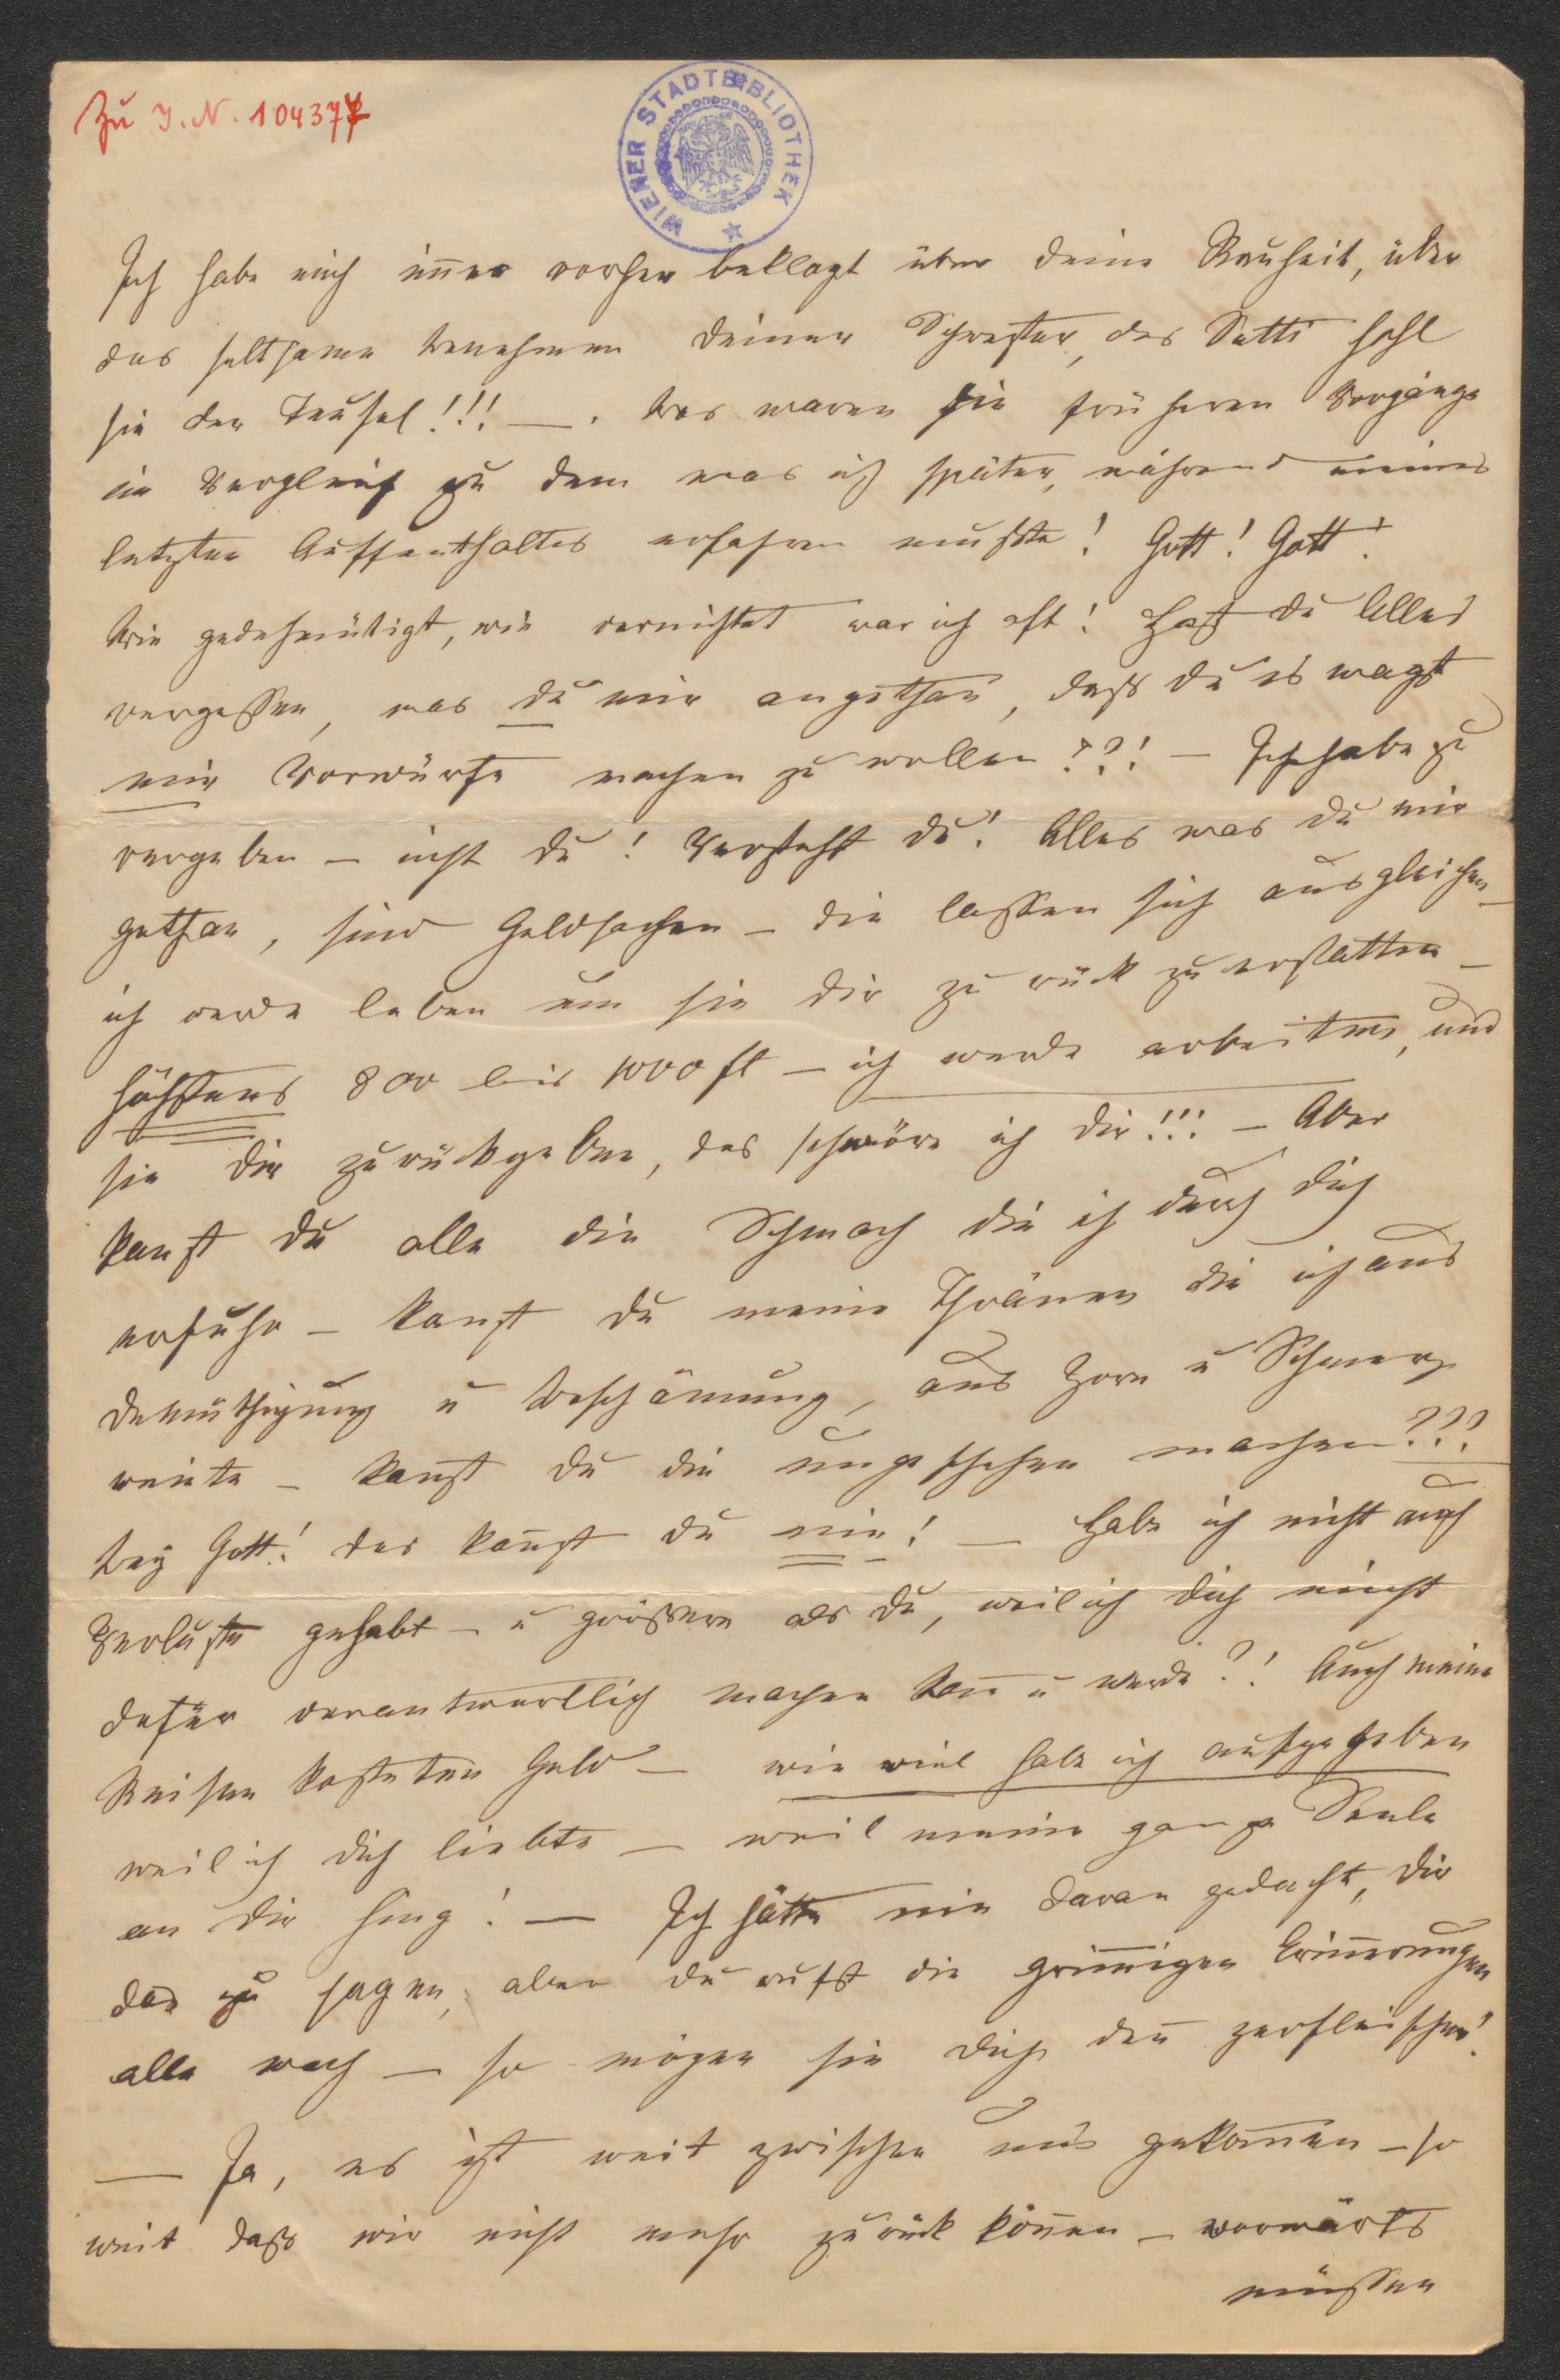 Zu I.N. 104377
WIENER STADTBIBLIOTHEK
Ich habe mich im̄er vorher beklagt über deine Rauheit, über
das seltsame Benehmen deiner Schwester, des Satti hohl
sie der Teufel!!! —. Was waren die früheren Vorgänge
im Vergleich zu dem was ich später, während meines
letzten Auffenthaltes erfahren mußte! Gott! Gott!
Wie gedehmütigt, wie vernichtet war ich oft! Hast du Alles
vergessen, was du mir angethan, dass du es wagst
mir Vorwürfe machen zu wollen??! — Ich habe zu
vergeben — nicht du! Verstehst du! Alles was du mir
gethan, sind Geldsachen — die lassen sich ausgleichen —
ich werde leben um sie dir zurück zu erstatten —
höchstens 800 bis 1000 fl — ich werde arbeiten, und
sie dir zurückgeben, das schwöre ich dir!!! — Aber
kanst du alle die Schmach die ich durch dich
erfuhr — kanst du meine Thränen die ich aus
Demüthigung u Beschämung, aus Zorn u Schmerz
weinte — kanst du die ungeschehen machen???
Bey Gott! das kan̄st du nie! — Habe ich nicht auch
Verluste gehabt — u größere als du, weil ich dich nicht
dafür verantwortlich machen kan̄ u werde?! Auch meine
Reisen kosteten Geld — wie viel habe ich aufgegeben
weil ich dich liebte — weil meine ganze Seele
an dir hing! — Ich hätte nie daran gedacht, dir
das zu sagen, aber du rufst die grim̄igen Erin̄erungen
alle wach — so mögen sie dich den̄ zerfleischen!
— Ja, es ist weit zwischen uns gekom̄en — so
weit daß wir nicht mehr zurück kön̄en — vorwärts
müssen